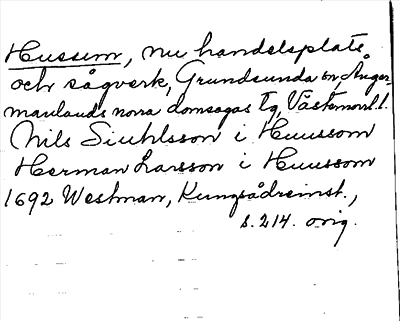 Husum, nu handelsplats
och sågverk, Grundsunda sn, Ånger-
manlands norra domsagas tg, Västernorrl. l.
Nils Siuhlsson i Huussom
Herman Larsson i Huussom
1692 Westman, Kungsådreinst.,
s. 214. orig.